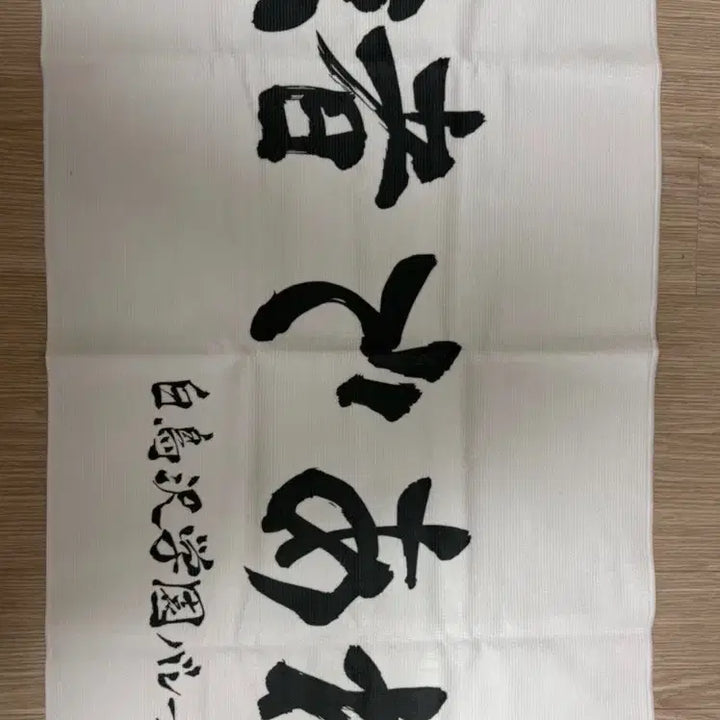 者であ
白鳥沢学園バ